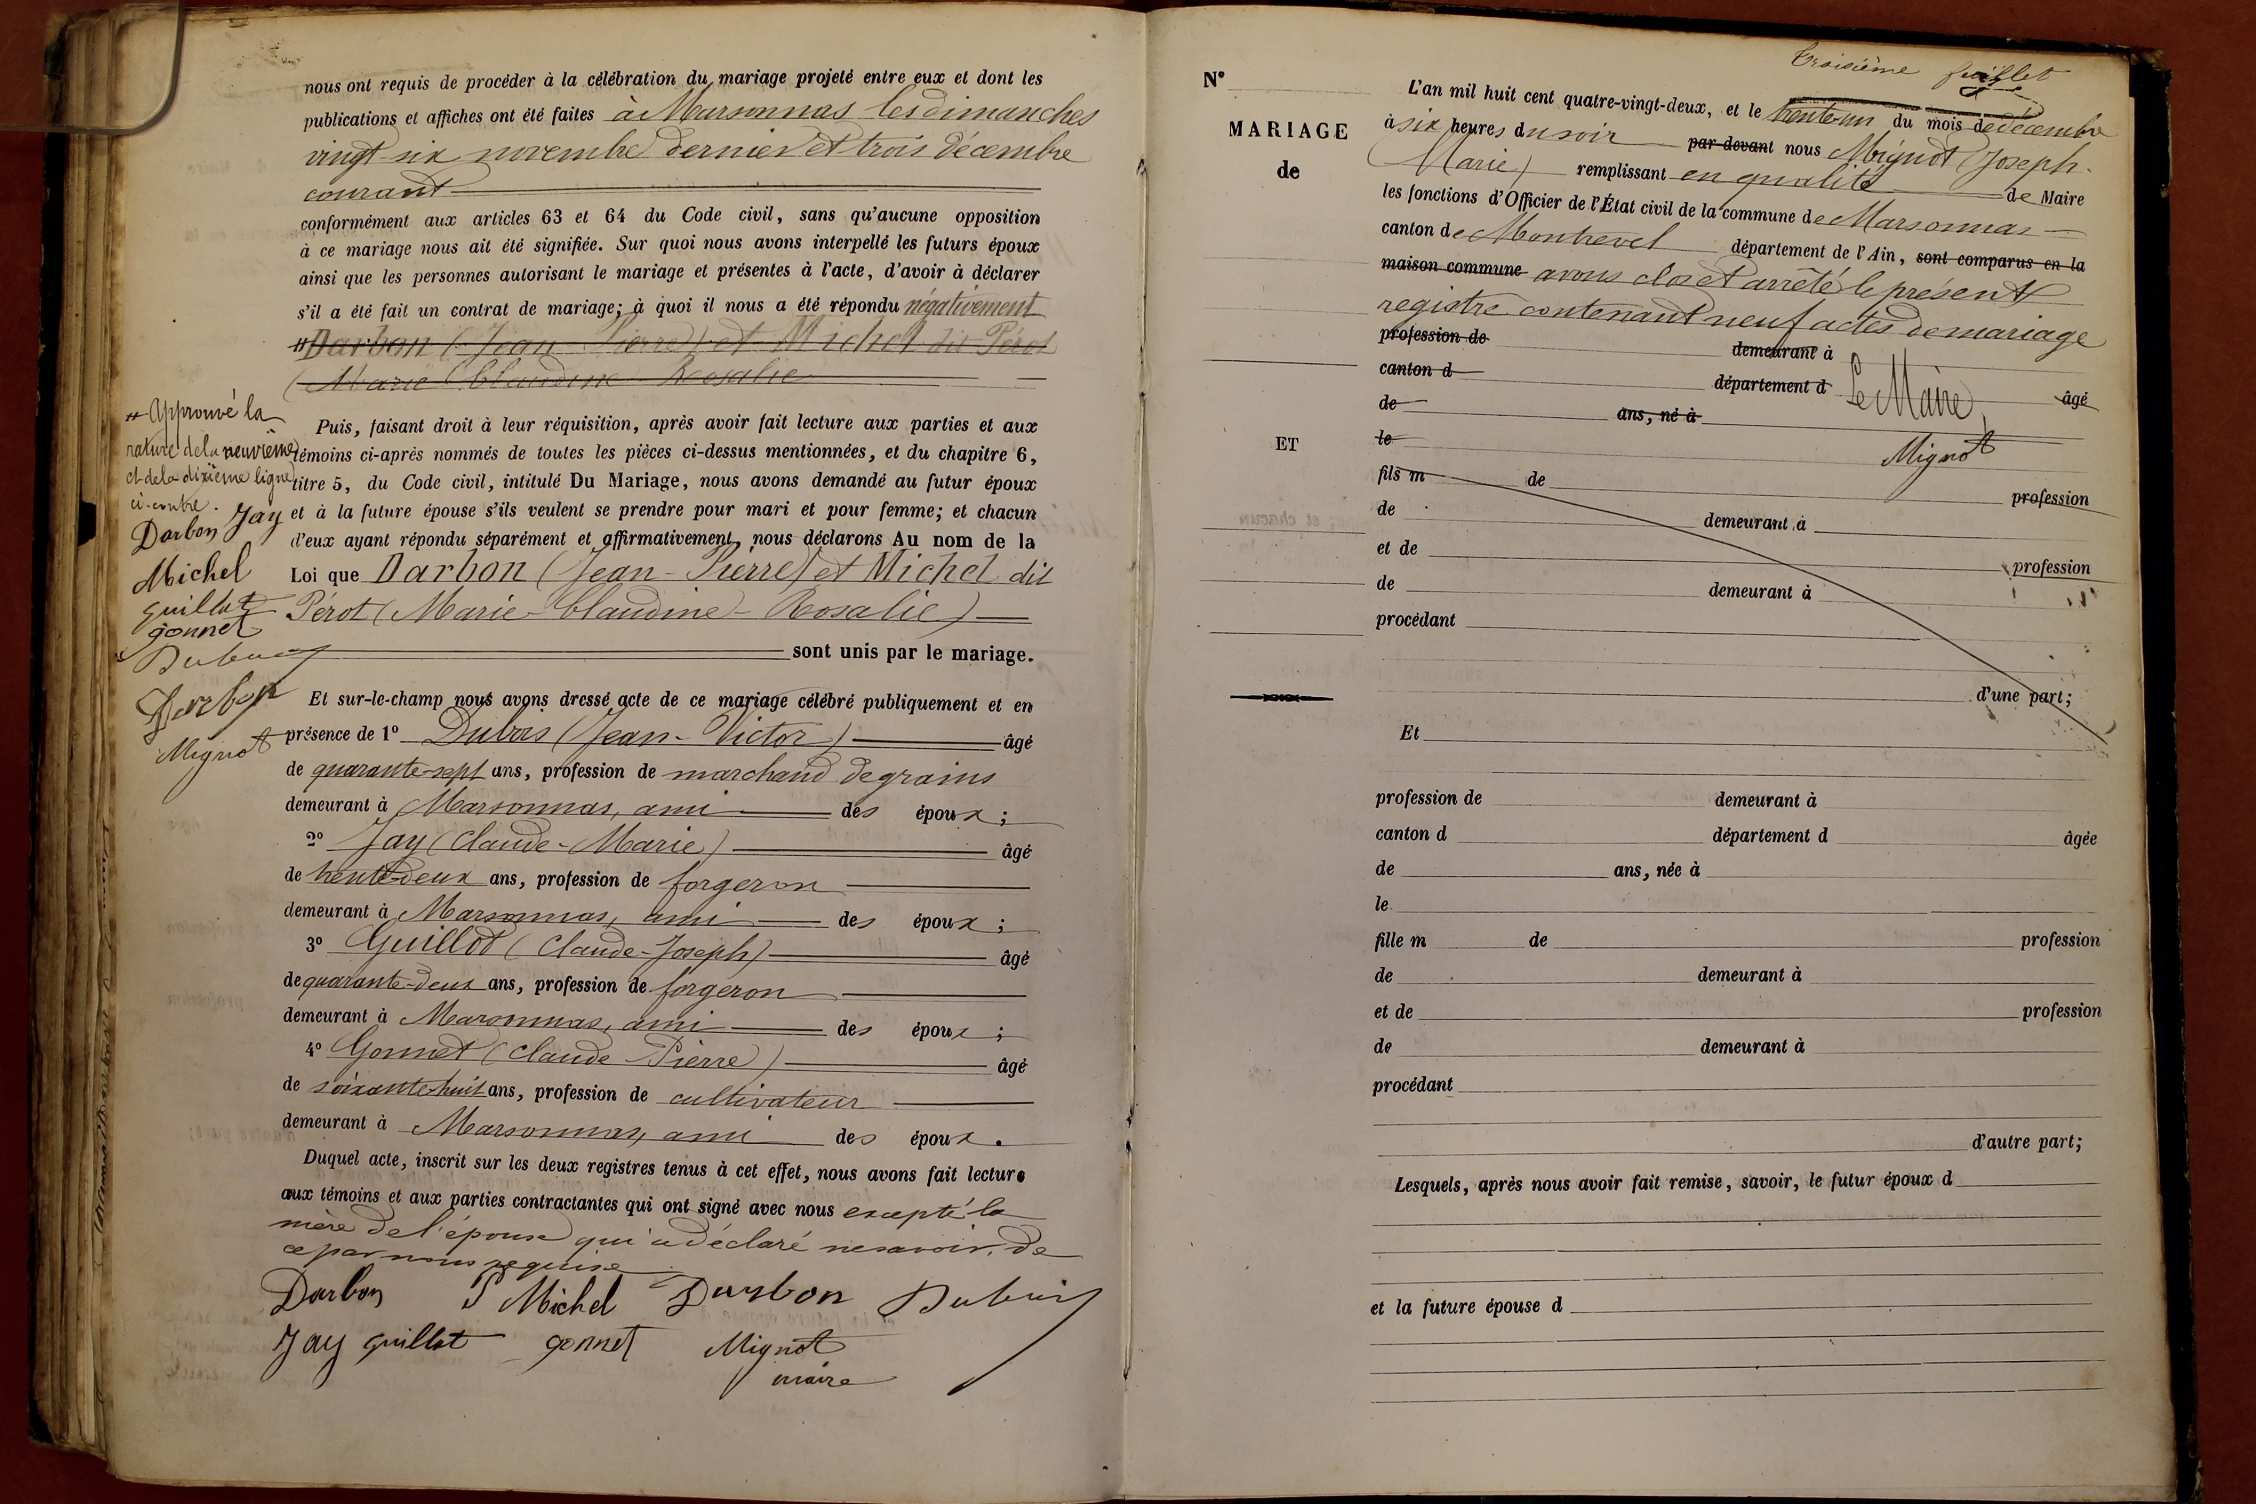 nous ont requis de procéder à la célébration du mariage projeté entre eux et dont les
publications et affiches ont été faites à Marsonnas les dimanches
vingt-six novembre dernier et trois décembre
courant
conformément aux articles 63 et 64 du Code civil, sans qu'aucune opposition
à ce mariage nous ait été signifiée. Sur quoi nous avons interpellé les futurs époux
ainsi que les personnes autorisant le mariage et présentes à l'acte, d'avoir à déclarer
s'il a été fait un contrat de mariage; à quoi il nous a été répondu négativement
Darbon (Jean-Pierre) et Michel dit Pérot
(Marie Claudine Rosalie
Approuvé la
rature de la neuvième
et de la dixième ligne
ci-contre.
Darbon Jay
Michel
guillot
gonnet
Dubois
Darbon
Mignot
Puis, faisant droit à leur réquisition, après avoir fait lecture aux parties et aux
témoins ci-après nommés de toutes les pièces ci-dessus mentionnées, et du chapitre 6,
titre 5, du Code civil, intitulé Du Mariage, nous avons demandé au futur époux
et à la future épouse s'ils veulent se prendre pour mari et pour femme; et chacun
d'eux ayant répondu séparément et affirmativement, nous déclarons Au nom de la
Loi que Darbon (Jean-Pierre) et Michel dit
Pérot (Marie-Claudine-Rosalie)
sont unis par le mariage.
Et sur-le-champ nous avons dressé acte de ce mariage célébré publiquement et en
présence de 1° Dubois (Jean-Victor) âgé
de quarante-sept ans, profession de marchand de grains
demeurant à Marsonnas, ami des époux ;
2° Jay (Claude-Marie) âgé
de trente-deux ans, profession de forgeron
demeurant à Marsonnas, ami des époux ;
3° Guillot (Claude-Joseph) âgé
de quarante-deux ans, profession de forgeron
demeurant à Marsonnas, ami des époux ;
4° Gonnet (Claude Pierre) âgé
de soixante huit ans, profession de cultivateur
demeurant à Marsonnas, ami des époux.
Duquel acte, inscrit sur les deux registres tenus à cet effet, nous avons fait lecture
aux témoins et aux parties contractantes qui ont signé avec nous excepté la
mère de l'épouse qui a déclaré ne savoir, de
ce par nous requise
Darbon Michel Darbon Dubois
Jay guillot gonnet Mignot
maire
Troisième feuillet
N°
MARIAGE
de
ET
L'an mil huit cent quatre-vingt-deux, et le trente-un du mois de décembre
à six heures du soir par devant nous Mignot (Joseph-
Marie) remplissant en qualité de Maire
les fonctions d'Officier de l'État civil de la commune de Marsonnas
canton de Montrevel département de l'Ain, sont comparus en la
maison commune avons clos et arrêté le présent
registre contenant neuf actes de mariage
profession de demeurant à
canton d département d Le Maire, âgé
de ans, né à
le Mignot
fils m de profession
de demeurant à
et de profession
de demeurant à
procédant
d'une part;
Et
profession de demeurant à
canton d département d âgée
de ans, née à
le
fille m de profession
de demeurant à
et de profession
de demeurant à
procédant
d'autre part;
Lesquels, après nous avoir fait remise, savoir, le futur époux d
et la future épouse d